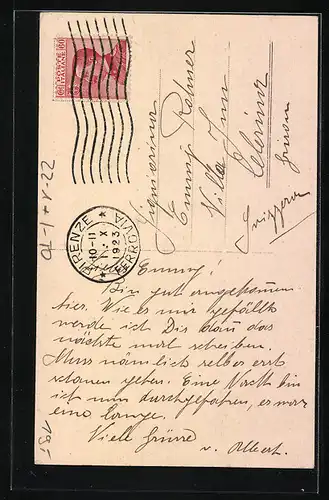 POSTE ITALIANE
FIRENZE FERROVIA
10-11
1. X
1923
Signorina
Emmy Rohner
Villa Inn
Celerina
Svizzera
Emmy!
Bin gut angekommen
hier. Wie es mir gefällt
werde ich Dir dann das
nächste mal schreiben.
Muss nämlich selber erst
schauen gehen. Eine Nacht bin
ich nun durchgefahren, es war
eine lange.
Viele Grüsse
v. Albert.